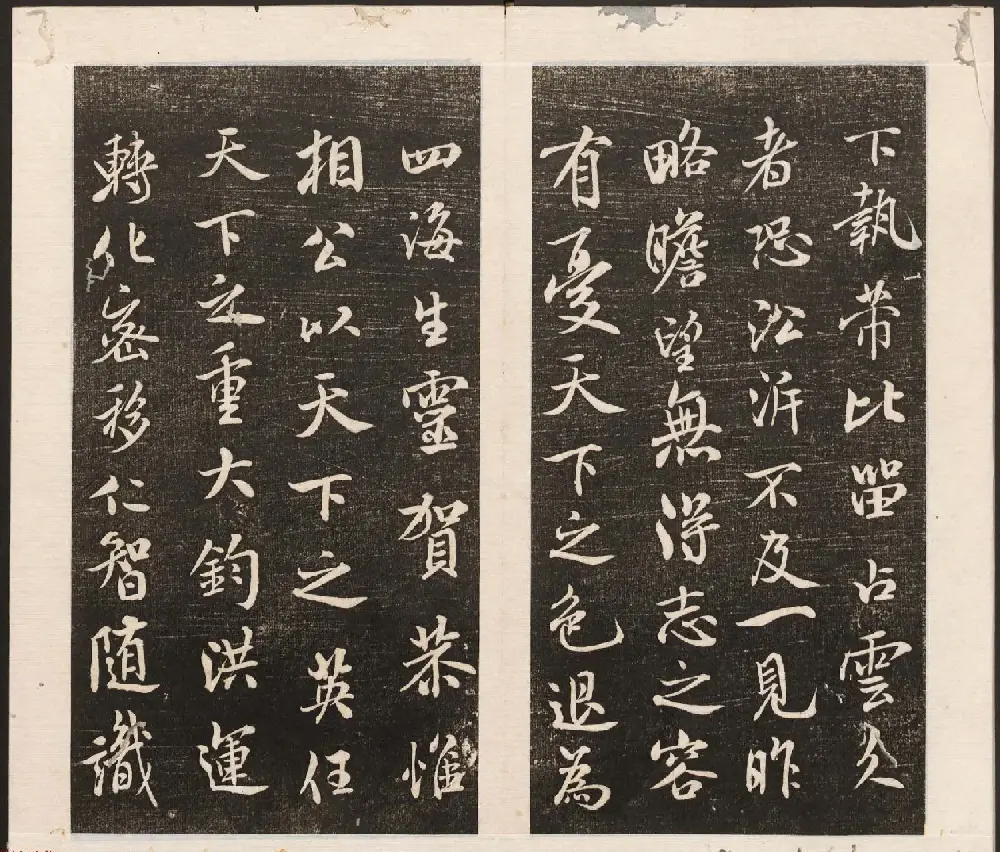 下執帶比留占雲久
者恐沿泝不及一見昨
略瞻望無得志之容
有憂天下之色退為
四海生靈賀恭惟
相公以天下之英任
天下之重大鈞洪運
轉化密移仁智随識